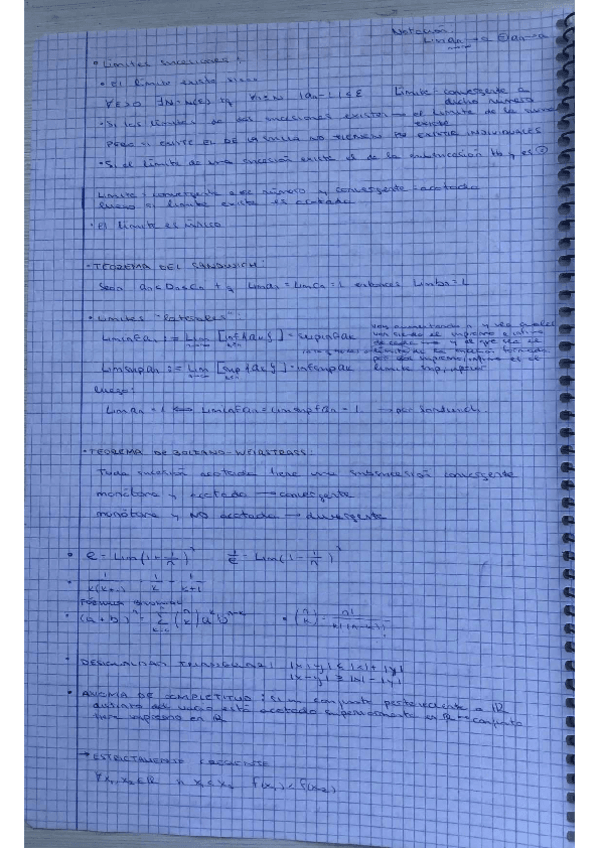 Notación:
Lim an → a ó an → a
• Límites sucesiones:
• El límite existe si
∀ε>0 ∃N=N(ε) tq ∀n≥N |an-L|≤ε Límite = convergente a
dicho número
• Si los límites de dos sucesiones existen → el límite de la suma
existe
PERO SI EXISTE EL DE LA SUMA NO TIENEN PQ EXISTIR INDIVIDUALES
• Si el límite de una sucesión existe el de la subsucesión tb y es =
Límite = convergente a ese número y convergente = acotada
luego si límite existe es acotada
• El límite es único
• TEOREMA DEL SANDWICH:
Sean an≤bn≤cn tq Lim an = Lim cn = L entonces Lim bn = L
• Límites "laterales":
Lim inf an := Lim [inf{ak}] = sup inf ak
Lim sup an := Lim [sup{ak}] = inf sup ak
límite sup, inferior
Luego:
Lim an = L ⟺ Lim inf an = Lim sup an = L → por sandwich
• TEOREMA DE BOLZANO-WEIRSTRASS:
Toda sucesión acotada tiene una subsucesión convergente
monótona y acotada → convergente
monótona y NO acotada → divergente
• e = Lim(1+1/n)^n 1/e = Lim(1-1/n)^n
• 1/k(k+1) = 1/k - 1/k+1
FÓRMULA BINOMIAL
• (a+b)^n = Σ (n k) a^k b^n-k • (n k) = n!/k!(n-k)!
• DESIGUALDAD TRIANGULAR: |x+y| ≤ |x|+|y|
|x-y| ≥ |x|-|y|
• AXIOMA DE COMPLETITUD: si un conjunto perteneciente a ℝ
distinto del vacío está acotado superiormente en ℝ → conjunto
tiene supremo en ℝ
→ ESTRICTAMENTE CRECIENTE
∀x₁,x₂∈ℝ x₁<x₂ f(x₁)<f(x₂)